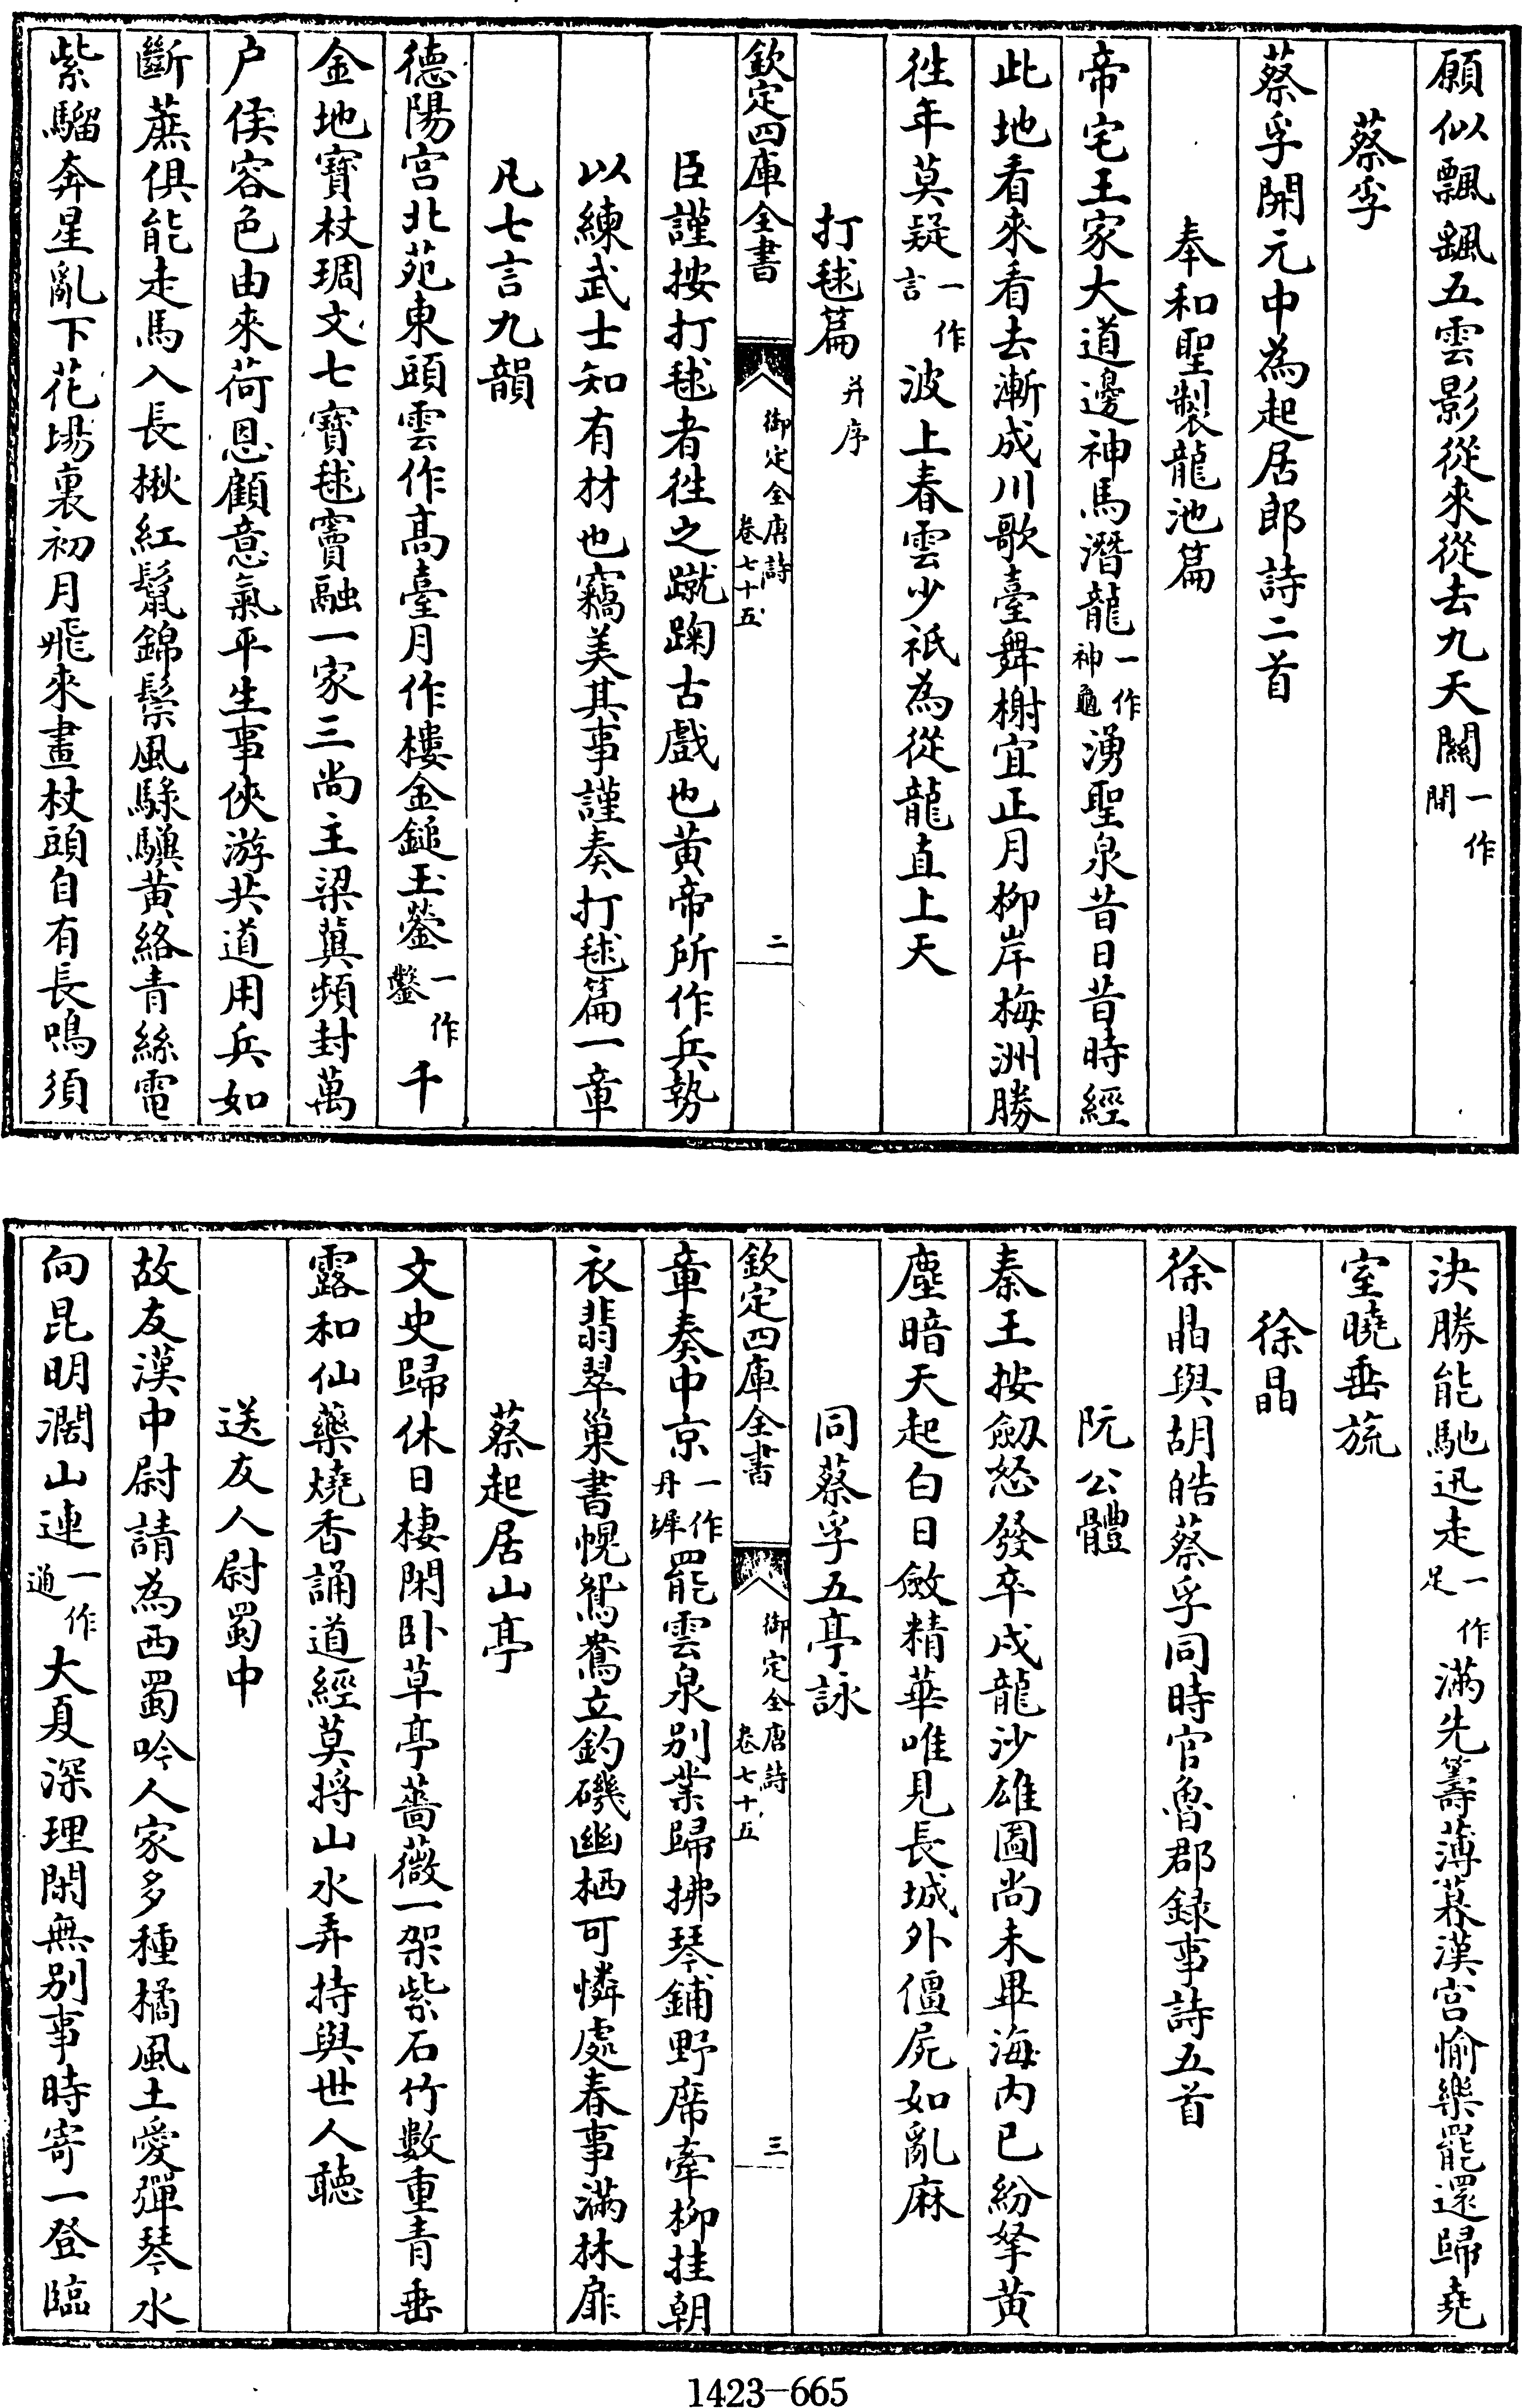 願似飄颻五雲影從來從去九天關一作閒
蔡孚
蔡孚開元中為起居郎詩二首
奉和聖製龍池篇
帝宅王家大道邊神馬潛龍一作神龜湧聖泉昔日昔時經
此地看來看去漸成川歌臺舞榭宜正月柳岸梅洲勝
徃年莫疑一作言波上春雲少祇為從龍直上天
打毬篇并序
欽定四庫全書
御定全唐詩
卷七十五
二
臣謹按打毬者徃之蹴踘古戲也黃帝所作兵勢
以練武士知有材也竊美其事謹奏打毬篇一章
凡七言九韻
德陽宮北苑東頭雲作高臺月作樓金鎚玉鎣一作鑿千
金地寶杖琱文七寶毬竇融一家三尚主梁冀頻封萬
户侯容色由來荷恩顧意氣平生事俠游共道用兵如
斷蔗俱能走馬入長楸紅鬛錦鬃風騄驥黃絡青絲電
紫騮奔星亂下花塲裏初月飛來畫杖頭自有長鳴須
決勝能馳迅走一作足滿先籌薄暮漢宮愉樂罷還歸堯
室曉垂旒
徐晶
徐晶與胡皓蔡孚同時官魯郡錄事詩五首
阮公體
秦王按劒怒發卒戍龍沙雄圖尚未畢海內已紛拏黃
塵暗天起白日斂精華唯見長城外僵屍如亂麻
同蔡孚五亭詠
欽定四庫全書
御定全唐詩
卷七十五
三
章奏中京一作丹墀罷雲泉别業歸拂琴鋪野席牽柳挂朝
衣翡翠巢書幌鴛鴦立釣磯幽栖可憐處春事滿林扉
蔡起居山亭
文史歸休日棲閑卧草亭薔薇一架紫石竹數重青垂
露和仙藥燒香誦道經莫將山水弄持與世人聽
送友人尉蜀中
故友漢中尉請為西蜀吟人家多種橘風土愛彈琴水
向昆明濶山連一作通大夏深理閑無别事時寄一登臨
1423-665